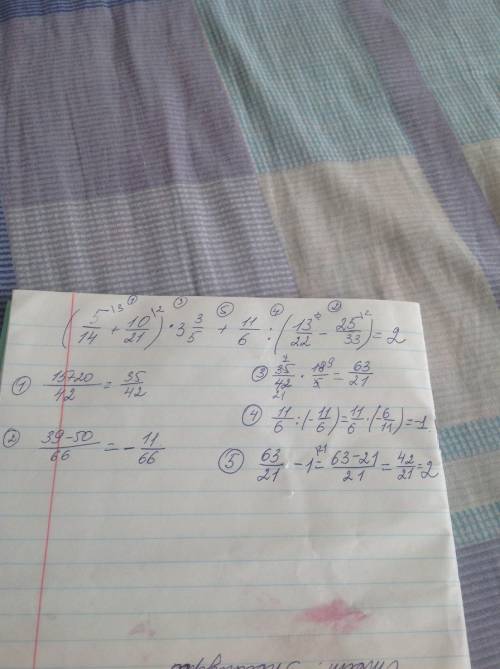 (5/14 \3 + 10/21 \2) · 3 3/5 + 11/6 : (13/22 - 25/33 \2) = 2
① ③ ⑤ ④ ②
① 15+20/42 = 35/42
② 39-50/66 = -11/66
③ 35/42 · 18/5 = 63/21
7 9
21
④ 11/6 : (-11/6) = 11/6 · (-6/11) = -1
⑤ 63/21 - 1 = 63-21/21 = 42/21 = 2